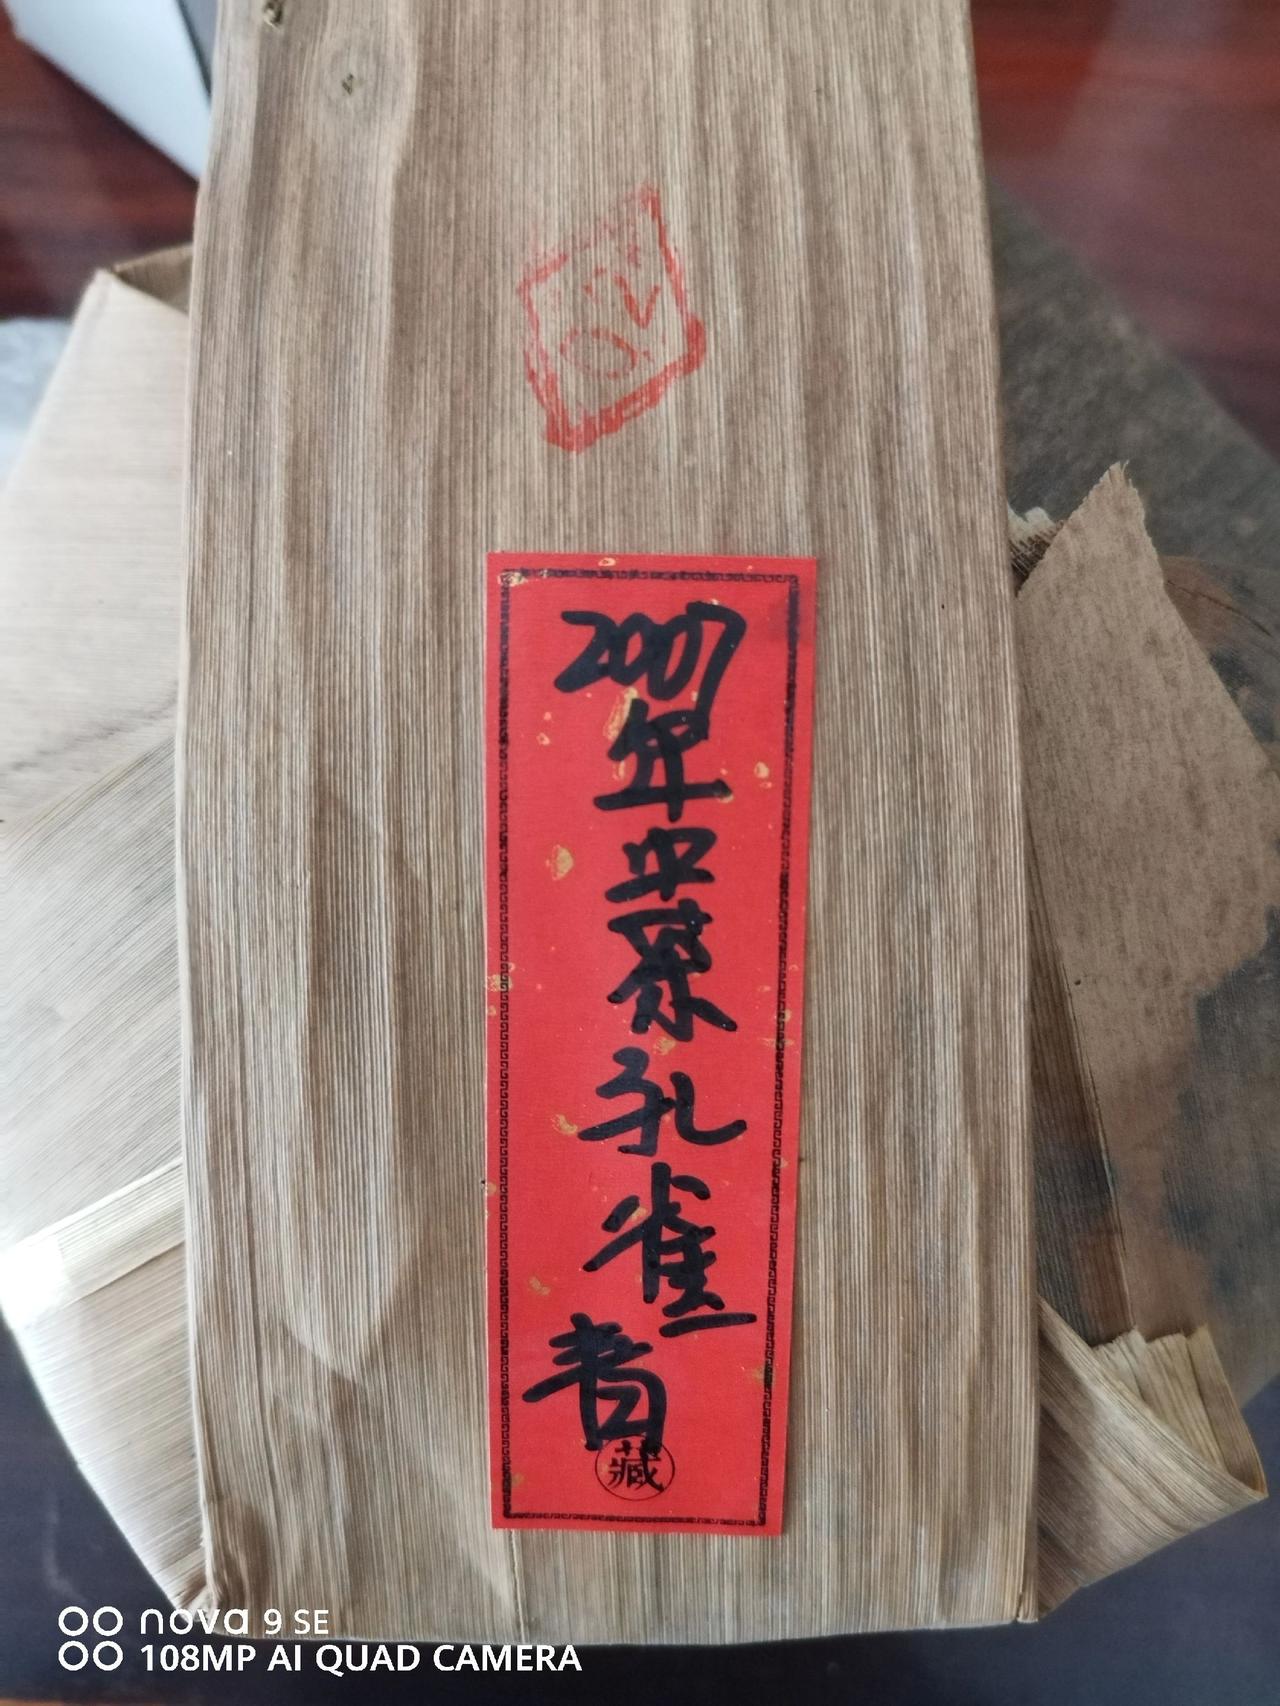 2007年孔雀青
藏
nova 9 SE
108MP AI QUAD CAMERA